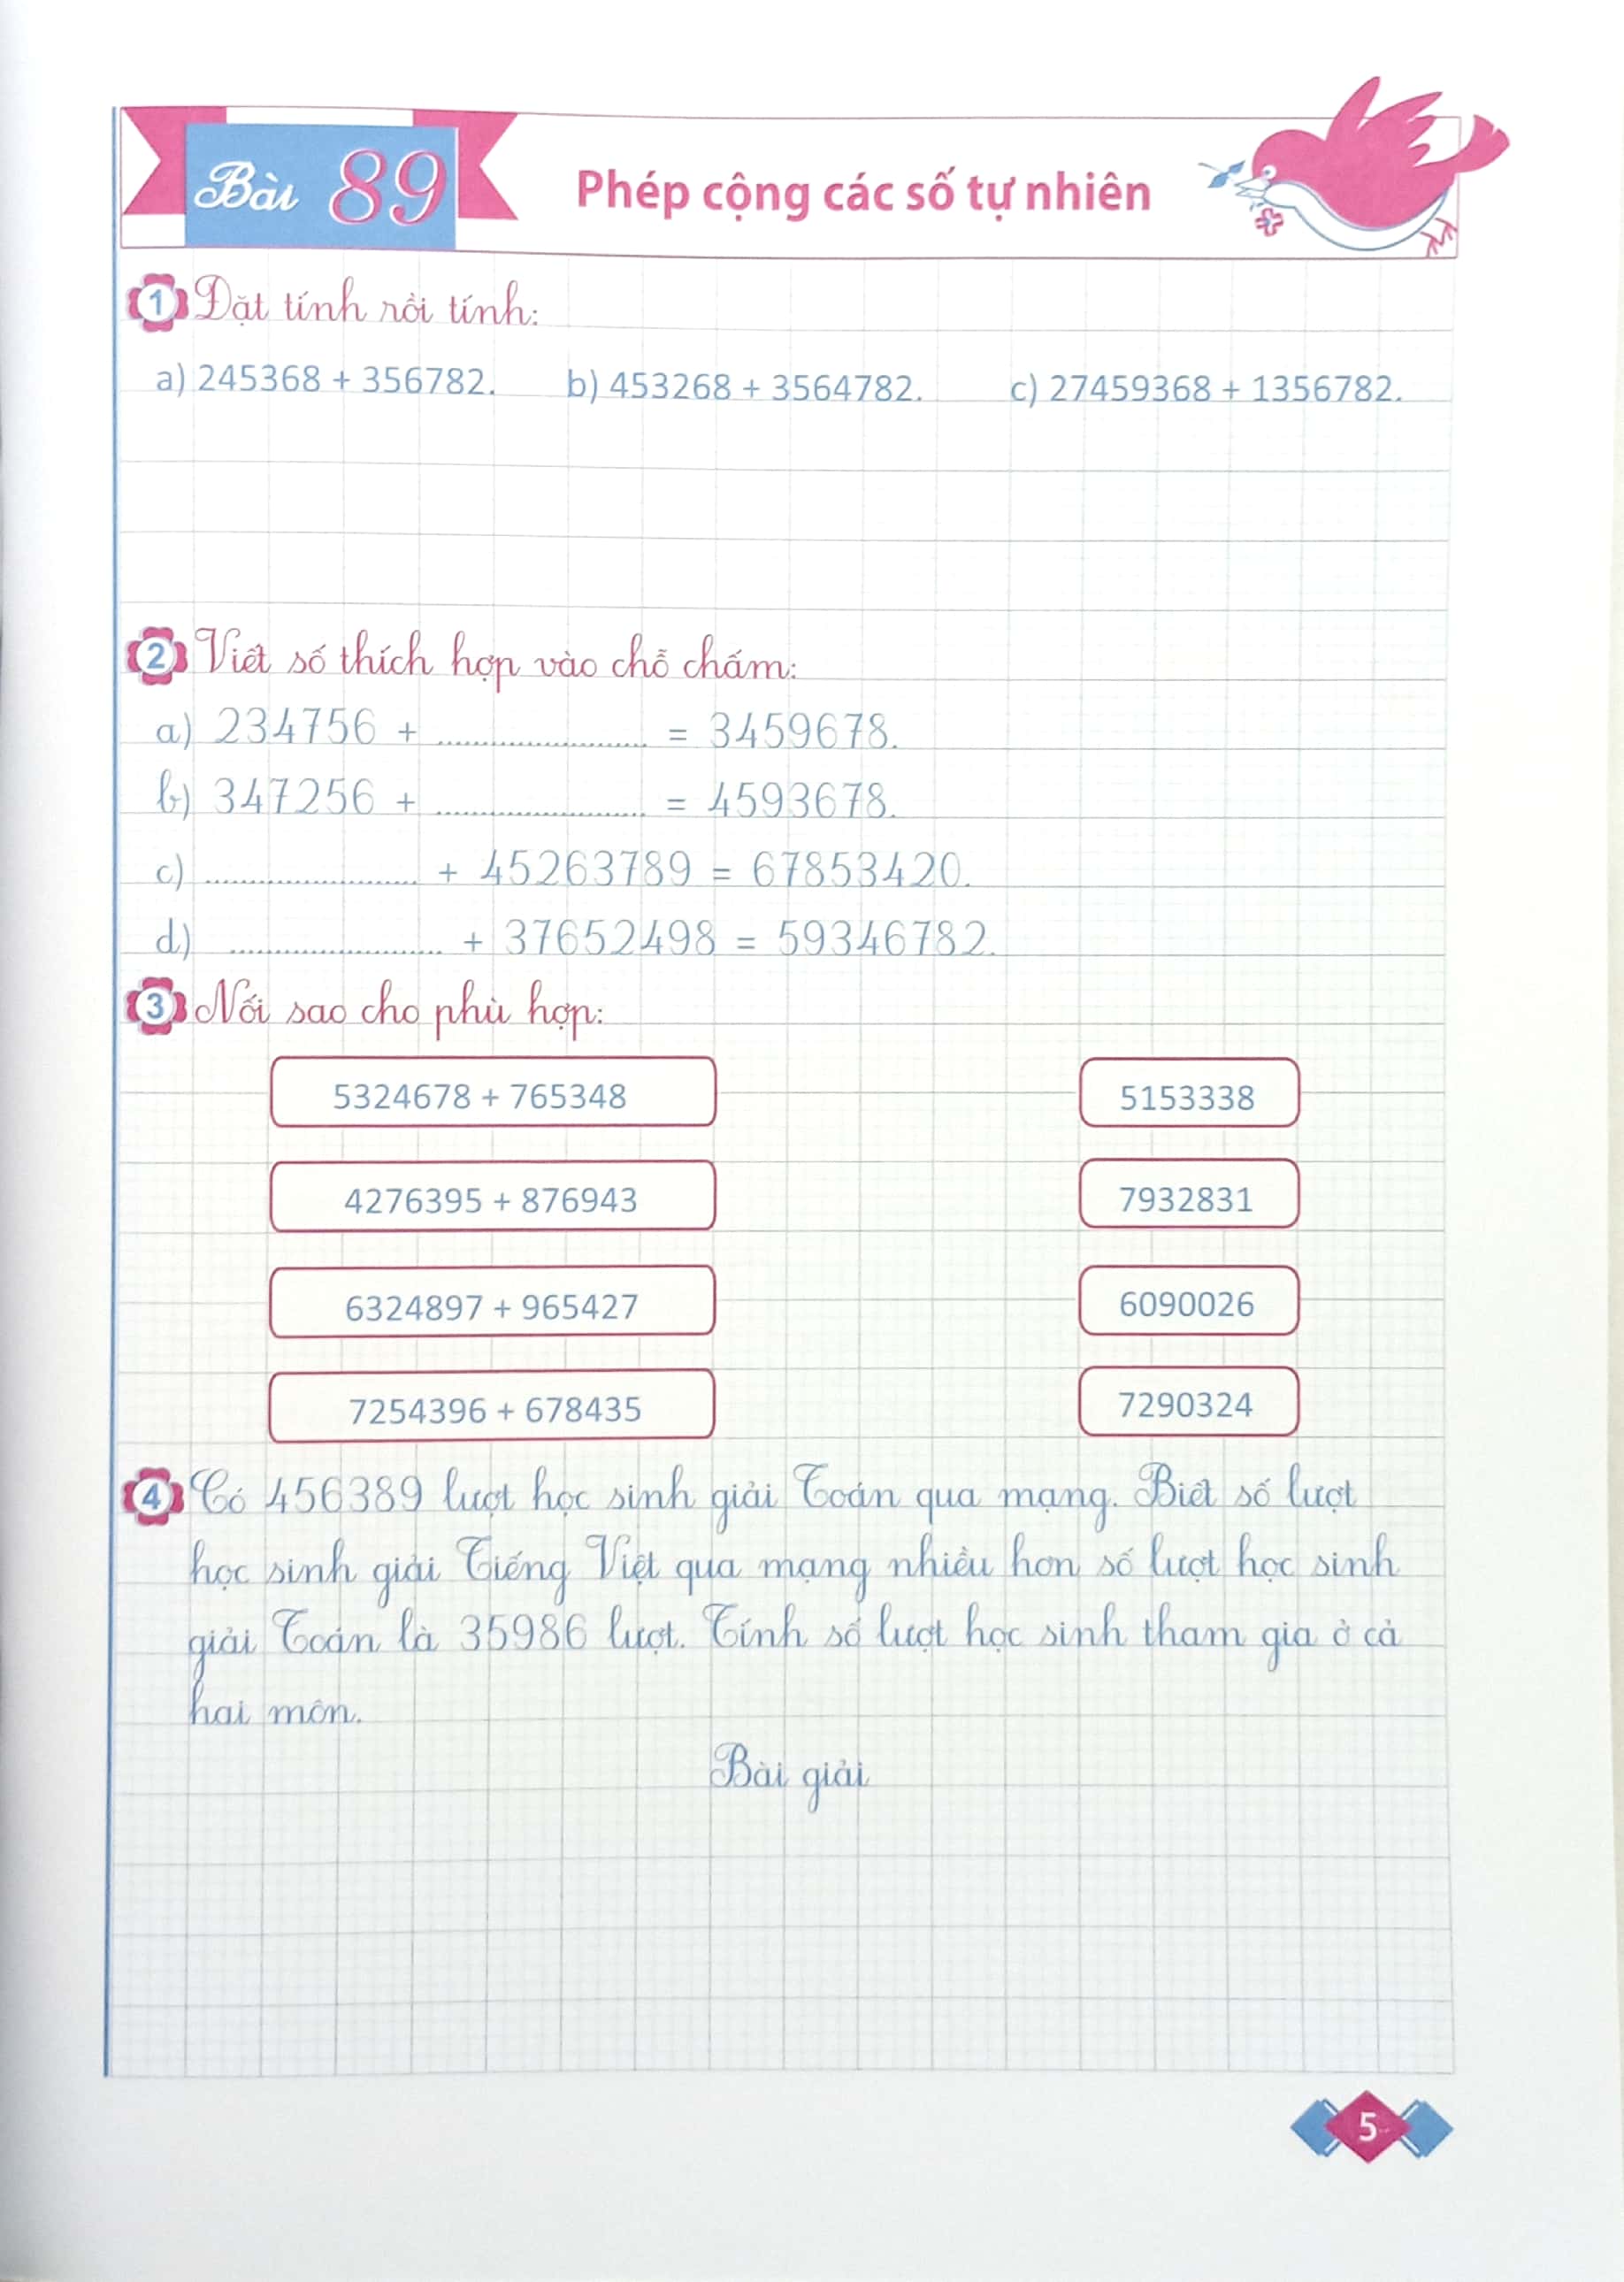 Bài 89 Phép cộng các số tự nhiên
1 Đặt tính rồi tính:
a) 245368 + 356782. b) 453268 + 3564782. c) 27459368 + 1356782.
2 Viết số thích hợp vào chỗ chấm:
a) 234756 + ........................ = 3459678.
b) 347256 + ........................ = 4593678.
c) ........................ + 45263789 = 67853420.
d) ........................ + 37652498 = 59346782.
3 Nối sao cho phù hợp:
5324678 + 765348 5153338
4276395 + 876943 7932831
6324897 + 965427 6090026
7254396 + 678435 7290324
4 Có 456389 lượt học sinh giải Toán qua mạng. Biết số lượt
học sinh giải Tiếng Việt qua mạng nhiều hơn số lượt học sinh
giải Toán là 35986 lượt. Tính số lượt học sinh tham gia ở cả
hai môn.
Bài giải
5